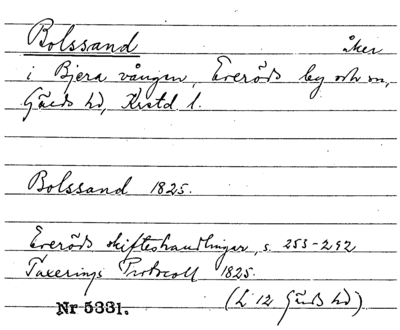 Bolssand åker
i Bjera vången, Everöds by och sn,
Gärds hd, Kristd l.
Bolssand 1825.
Everöds skifteshandlingar, s. 253-292
Taxerings Protocoll 1825.
Nr 5331. (L 12 Gärds hd)